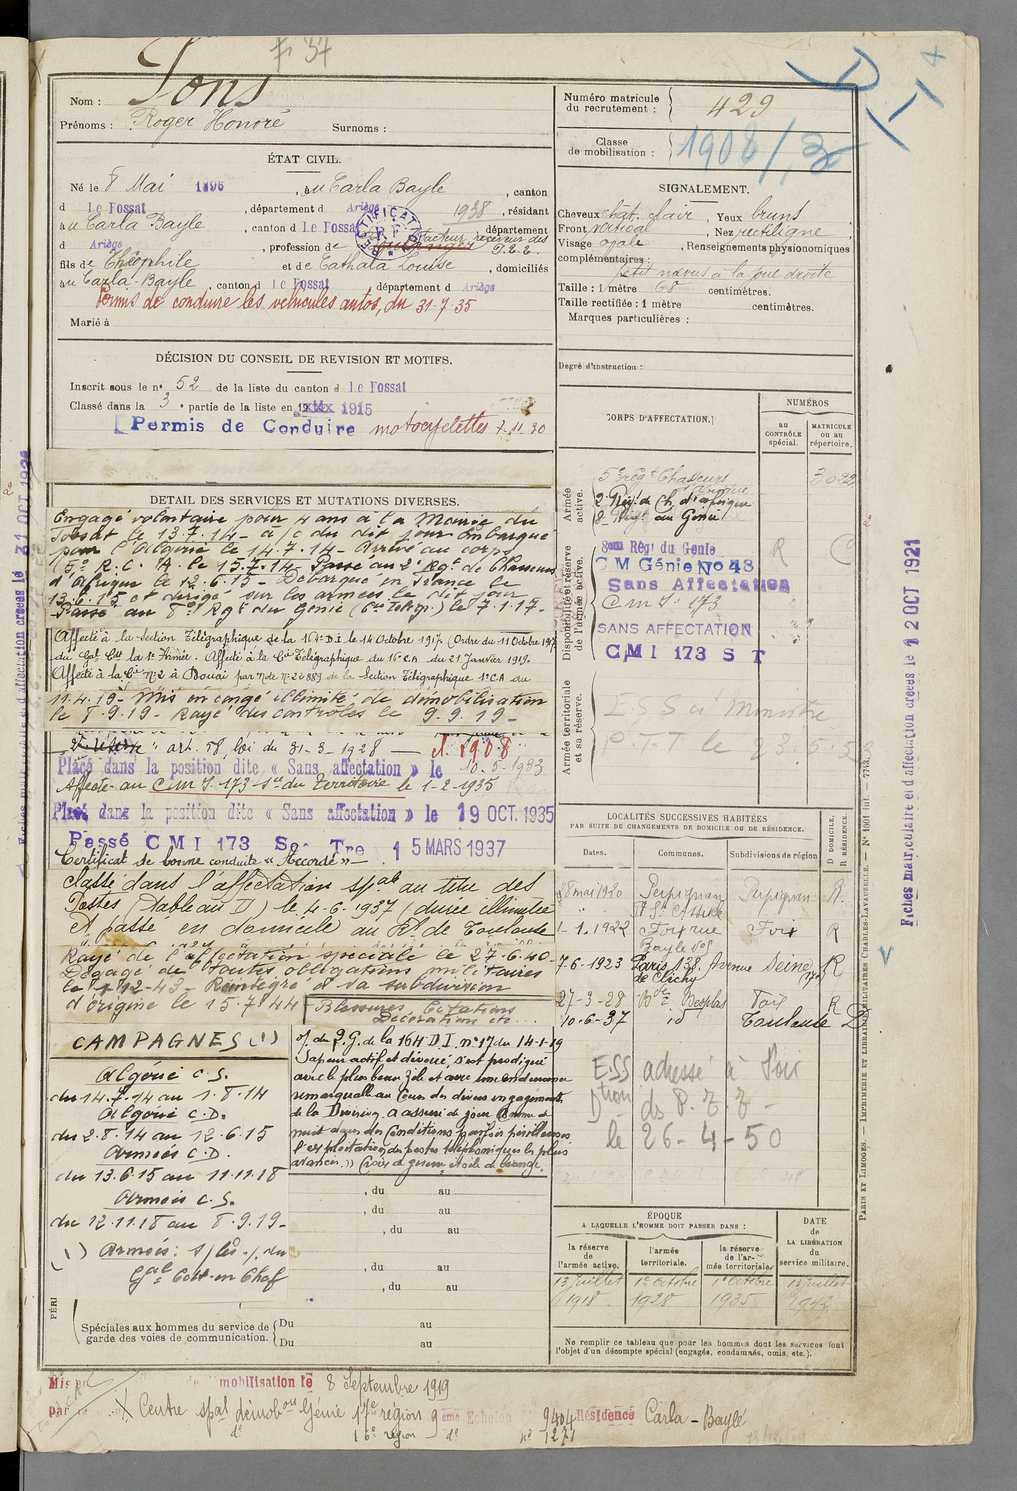 F 37
Nom : Pons
Prénoms : Roger Honoré Surnoms :
ÉTAT CIVIL.
Né le 8 Mai 1896, à u Carla Bayle, canton
d Le Fossat, département d Ariège 1938, résidant
à u Carla Bayle, canton d Le Fossat, département
d Ariège, profession de facteur receveur des P.T.T.
fils de Théophile et de Cathala Louise, domiciliés
au Carla-Bayle, canton d Le Fossat département d Ariège
Permis de conduire les vehicules autos, du 31-7-35
Marié à
DÉCISION DU CONSEIL DE REVISION ET MOTIFS.
Inscrit sous le n° 52 de la liste du canton d Le Fossat
Classé dans la 3e partie de la liste en 1915
Permis de Conduire motocyclettes
DETAIL DES SERVICES ET MUTATIONS DIVERSES.
Engagé volontaire pour 4 ans à la Mairie du
Fossat le 13.7.14 - à/c du dit jour Embarqué
pour l'Algérie le 14.7.14 - Arrivé au corps
(5e R.C.A. le 15.7.14 Passé au 2e Rgt de Chasseurs
d'Afrique le 12.6.15 - Débarqué en France le
13.6.15 et dirigé sur les armées le dit jour
Passé au 8e Rgt du Génie (Cie Télégr.) le 7.1.17-
Affecté à la Section Télégraphique de la 164e D.I. le 14 Octobre 1917 (Ordre du 11 Octobre 1917
du Gal Cdt la 1e Armée. Affecté à la Cie Télégraphique du 16e C.A. du 21 Janvier 1919.
Affecté à la Cie N°2 à Douai par Note N° 22889 de la Section Télégraphique 1e C.A. du
11.4.19 - Mis en congé illimité de démobilisation
le 8.9.19 - Rayé des contrôles le 9.9.19 -
art. 58 loi du 31-3-1928 — cl. 1908
Placé dans la position dite « Sans affectation » le 10-5-1933
Affecté au C.M.I. 173 Son du Territoire le 1-2-1935
Placé dans la position dite « Sans affectation » le 19 OCT. 1935
Passé C M I 173 Son Tre 15 MARS 1937
Certificat de bonne conduite « Accordé » —
Classé dans l'affectation spale au titre des
Postes (Tableau II) le 4-6-1937 (durée illimitée
Et passé en domicile au Rt. de Toulouse
Rayé de l'affectation spéciale le 27-6-40-
Dégagé de toutes obligations militaires
le 1-12-43 - Réintégré à sa subdivision
d'origine le 15-7-44
Blessures, Citations
Décorations etc...
CAMPAGNES (1)
Algérie C.S.
du 14.7.14 au 1.8.14
Algérie C.D.
du 2.8.14 au 12.6.15
Armées C.D.
du 13.6.15 au 11.11.18
Armées C.S.
du 12.11.18 au 8.9.19-
(1) Armées : s/ les o/. du
Gal Cdt en Chef
O/. du Q.G. de la 164 D.I. n° 17 du 14-1-19
Sapeur actif et dévoué. S'est prodigué
avec le plus beau zèle et avec une endurance
remarquable au cours des divers engagements
de la Division, a assuré de jour comme de
nuit dans des Conditions parfois périlleuses
l'exploitation des postes téléphoniques les plus
avancés. » Croix de guerre, étoile de bronze.
, du au
, du au
, du au
, du au
, du au
PÉRI
Spéciales aux hommes du service de garde des voies de communication. { Du au
Du au
Numéro matricule du recrutement : 429
Classe de mobilisation : 1908/
SIGNALEMENT.
Cheveux chat. clair, Yeux bruns
Front vertical, Nez rectiligne
Visage ovale, Renseignements physionomiques
complémentaires :
petit nævus à la joue droite
Taille : 1 mètre 68 centimètres.
Taille rectifiée : 1 mètre centimètres.
Marques particulières :
Degré d'instruction :
CORPS D'AFFECTATION.
NUMÉROS
au CONTRÔLE spécial.
MATRICULE ou au répertoire.
Armée active.
5e rég.t Chasseurs d'Afrique
2e Régt de Ch. d'Afrique
8e Régt du Génie
Disponibilité et réserve de l'armée active.
8em Régt du Genie R
C M Génie No 48
Sans Affectation
C m I. 173
SANS AFFECTATION
C M I 173 S T
Armée territoriale et sa réserve.
E.S.S. à Ministre
P.T.T le
LOCALITÉS SUCCESSIVES HABITÉES
PAR SUITE DE CHANGEMENTS DE DOMICILE OU DE RÉSIDENCE.
Dates. Communes. Subdivisions de région
D DOMICILE, R RÉSIDENCE.
18 mai 1920 Perpignan Perpignan R.
1-1-1922 Foix rue Bayle Foix R
7-6-1923 Paris 138, Avenue de Clichy Seine R
27-3-28 Foix R
10-6-37 id Toulouse D
ESS adressé à Foix
Dtion des P.T.T -
le 26-4-50
ÉPOQUE
A LAQUELLE L'HOMME DOIT PASSER DANS :
DATE de LA LIBÉRATION du service militaire.
la réserve de l'armée active.
l'armée territoriale.
la réserve de l'armée territoriale.
13 juillet 1918
1er octobre 1928
1er octobre 1935
13 juillet
Ne remplir ce tableau que pour les hommes dont les services font
l'objet d'un décompte spécial (engagés, condamnés, omis, etc.).
Mis en mobilisation le 8 Septembre 1919
par Centre spal démobon Génie 17e région 9ème Echelon 9404 Résidence Carla-Bayle
d° 16e région d° n° 1271
Fiches matriculaire et d'affectation créées le 12 OCT 1921
PARIS ET LIMOGES. — IMPRIMERIE ET LIBRAIRIE MILITAIRES CHARLES-LAVAUZELLE. — N° 1001